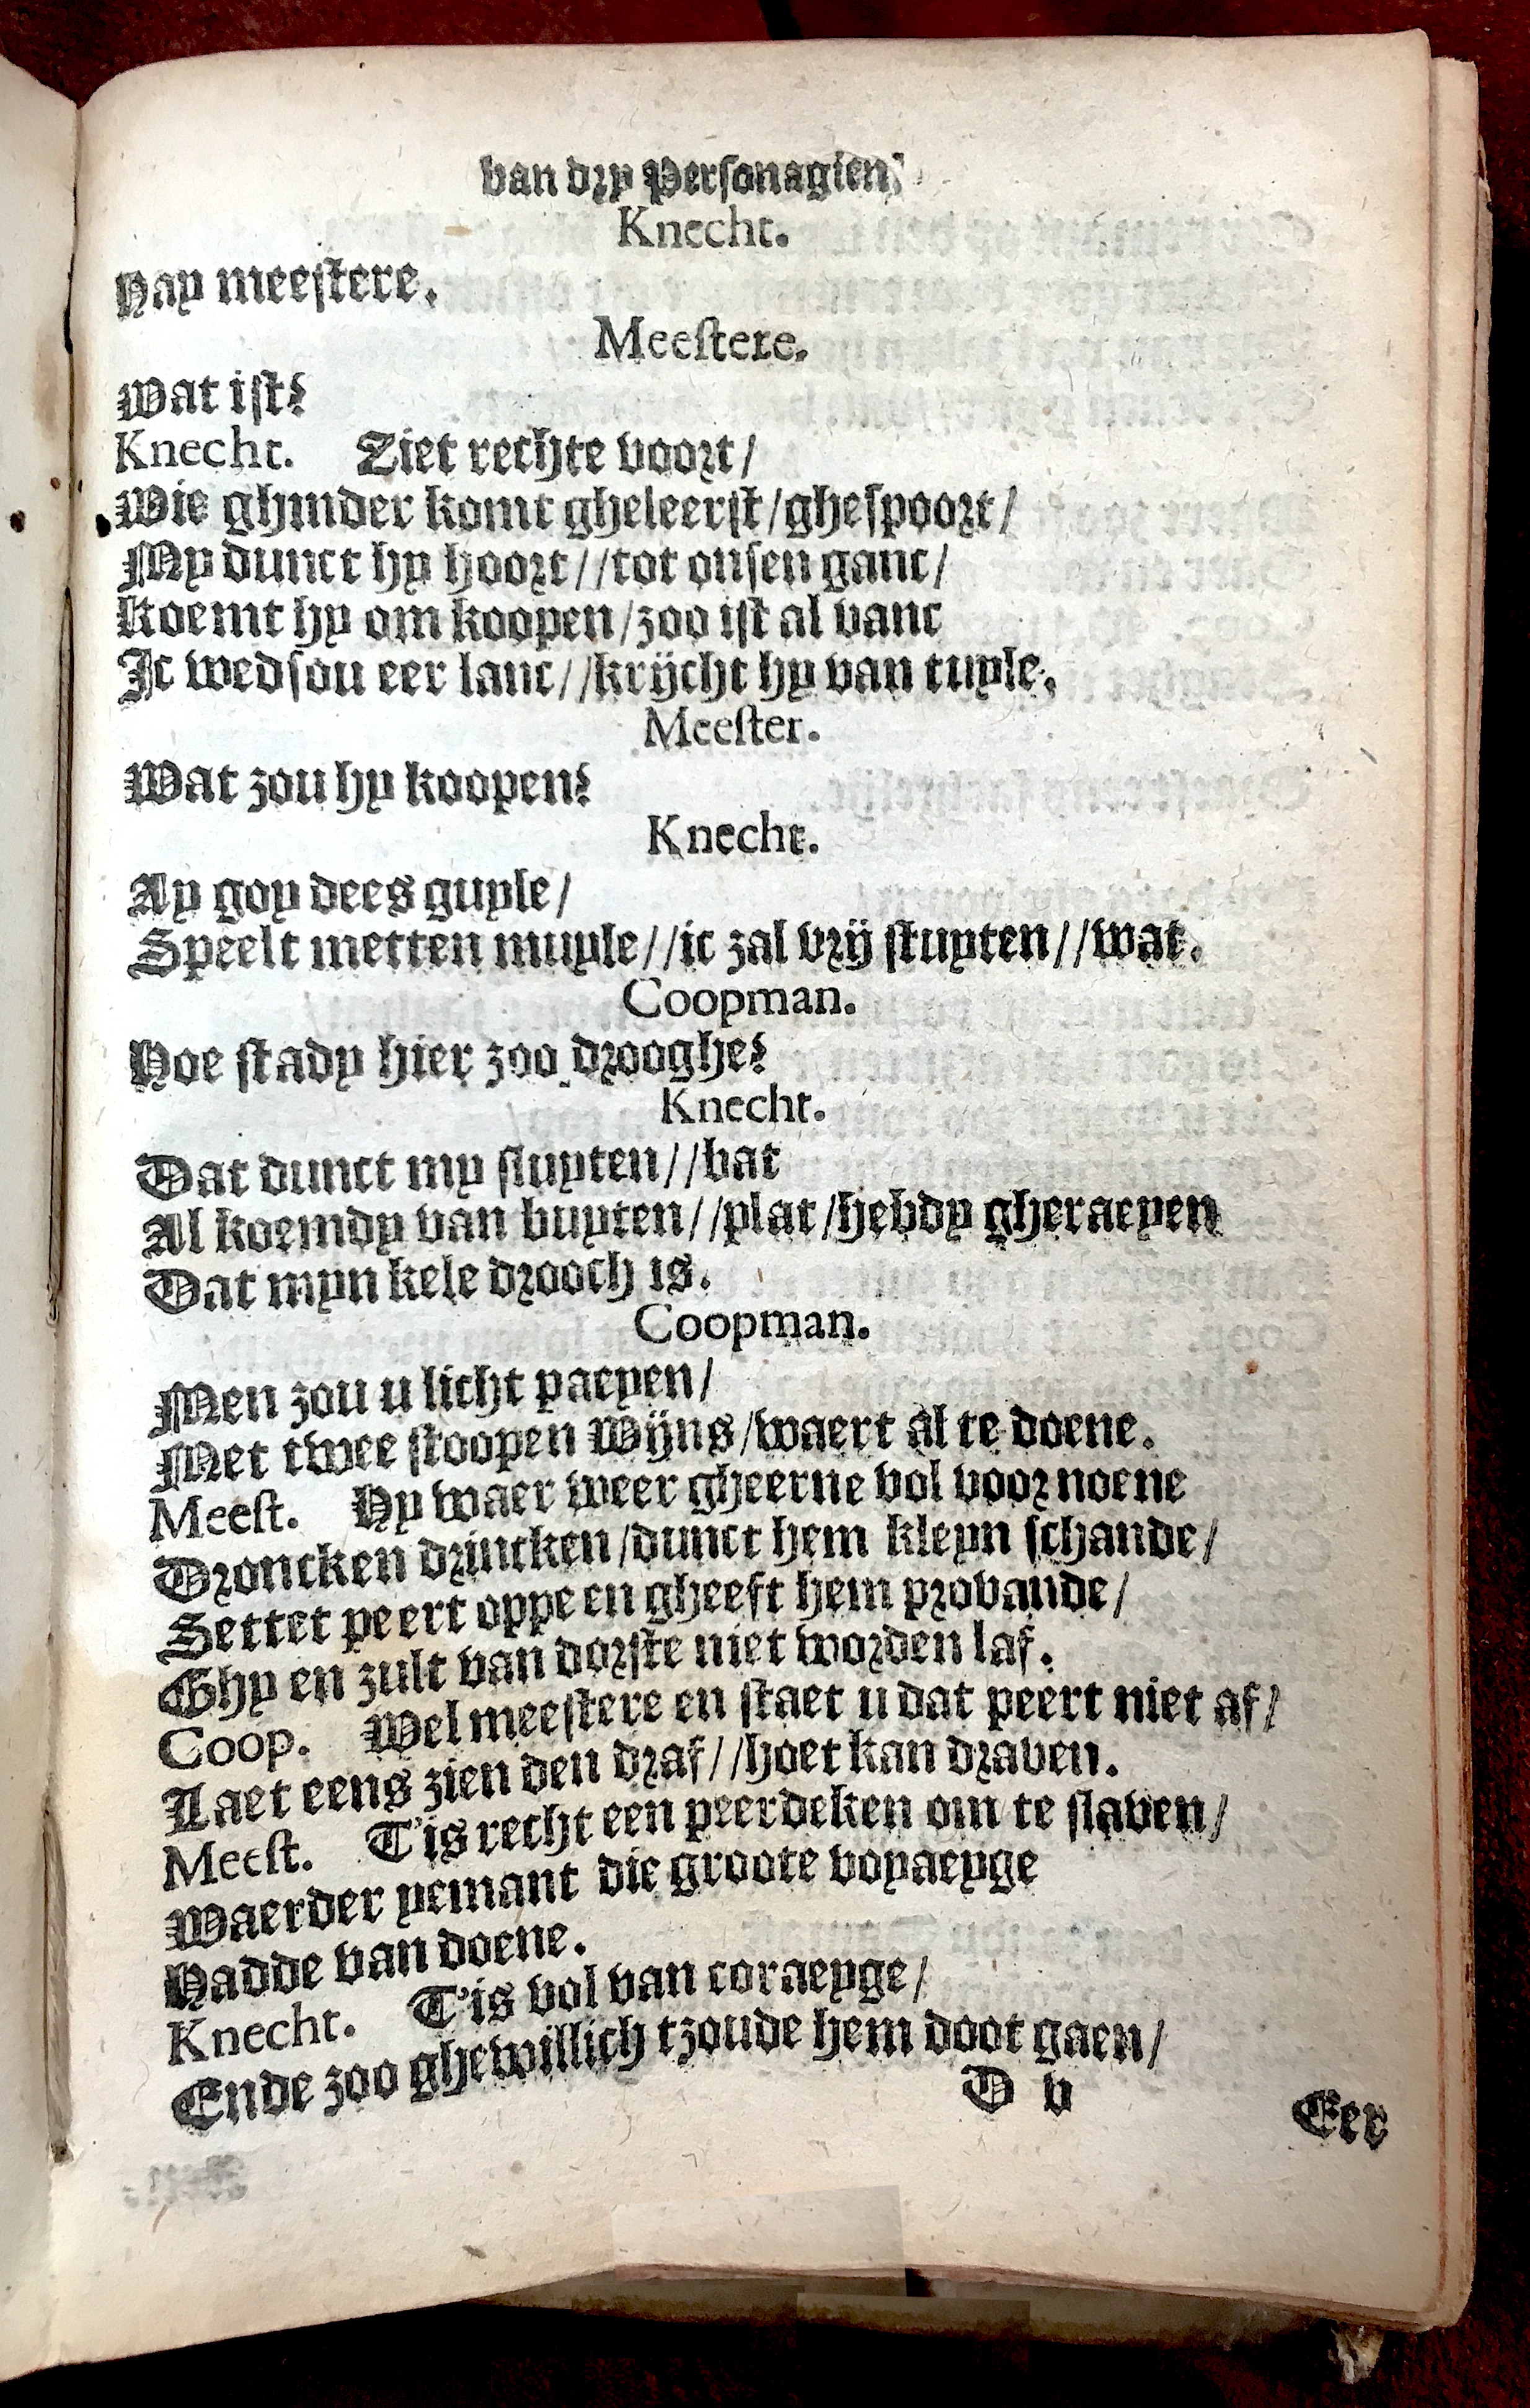 van dry Personagien.
Knecht.
Hay meestere.
Meestere.
Wat ist?
Knecht. Ziet rechte voort/
Wie ghinder komt gheleerst/ghespoort/
My dunct hy hoort//tot onsen ganc/
Koemt hy om koopen/zoo ist al vanc
Ic wedsou eer lanc//krijcht hy van tuyle.
Meester.
Wat zou hy koopen?
Knecht.
Ay goy dees guyle/
Speelt metten muyle//ic zal vrij stuyten//wat.
Coopman.
Hoe stady hier zoo drooghe?
Knecht.
Dat dunct my sluyten//bat
Al koemdy van buyten//plat/hebdy gheraeyen
Dat myn kele drooch is.
Coopman.
Men zou u licht paeyen/
Met twee stoopen Wijns/waert al te doene.
Meest. Hy waer weer gheerne vol voor noene
Droncken drincken/dunct hem kleyn schande/
Settet peert oppe en gheeft hem provande/
Ghy en zult van dorste niet worden laf.
Coop. Wel meestere en staet u dat peert niet af/
Laet eens zien den draf//hoet kan draven.
Meest. T'is recht een peerdeken om te slaven/
Waerder yemant die groote voyaeyge
Hadde van doene.
Knecht. T'is vol van coraeyge/
Ende zoo ghewillich tzoude hem doot gaen/
D v
Eer